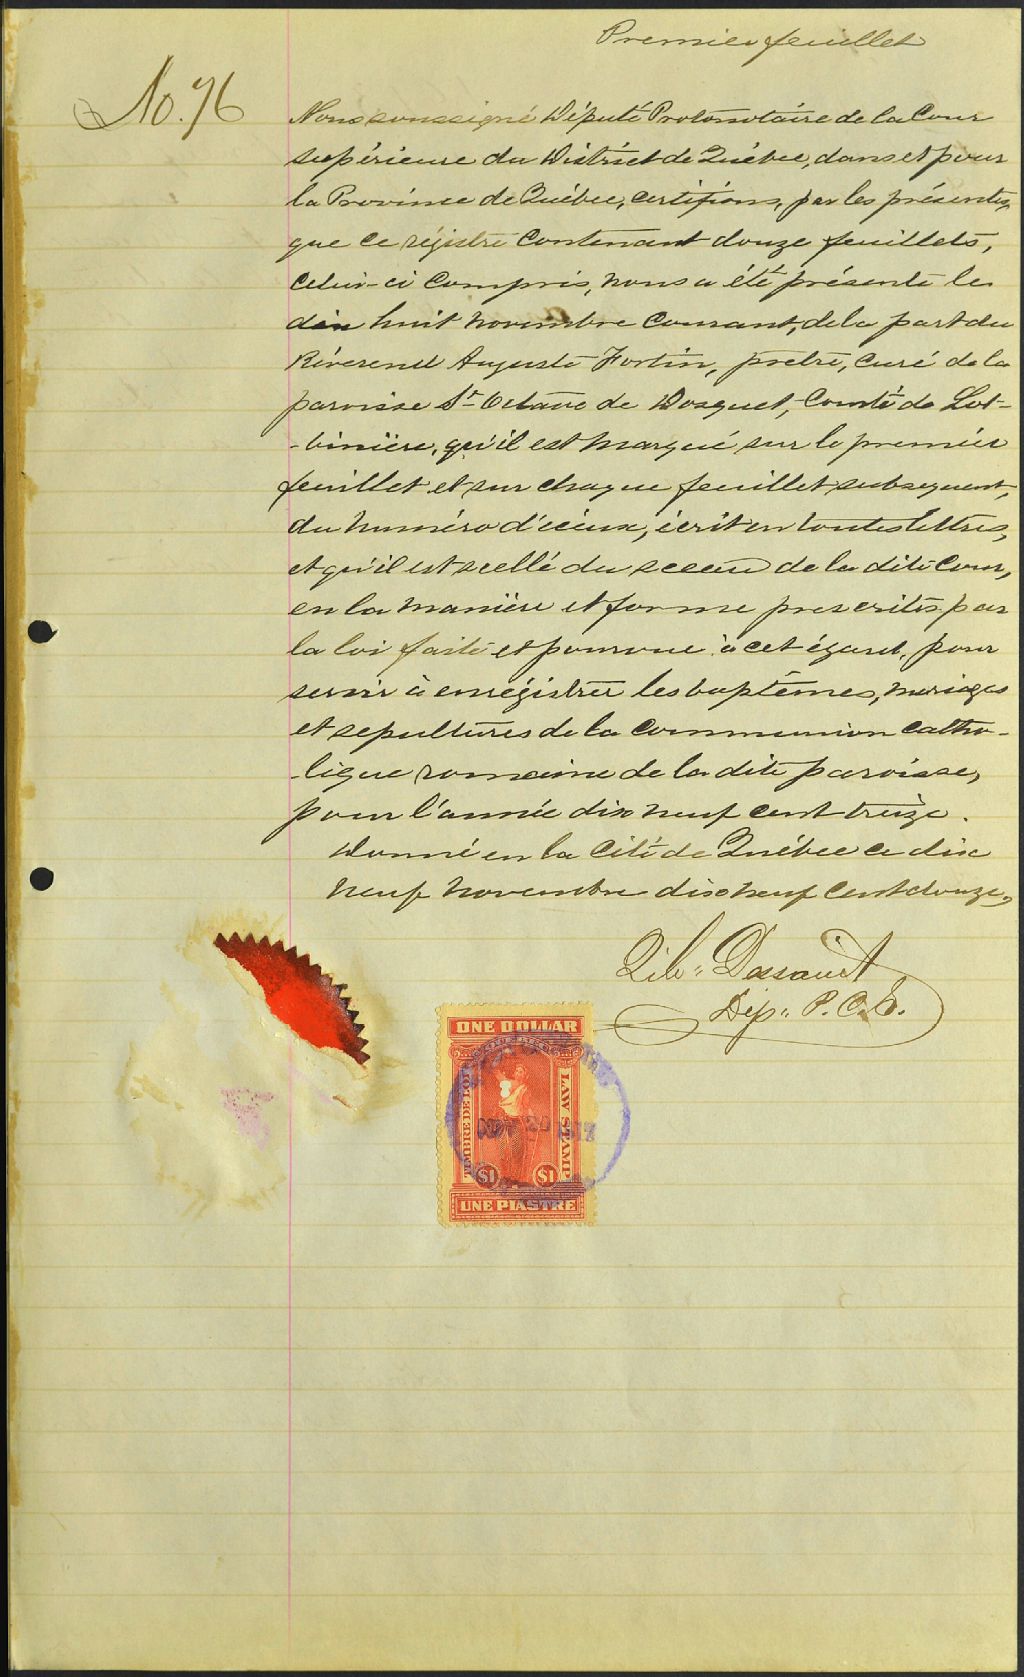 Premier feuillet
No. 76
Nous soussigné Député Protonotaire de la Cour
supérieure du District de Québec, dans et pour
la Province de Québec, certifions, par les présentes,
que ce régistre contenant douze feuillets,
celui-ci compris, nous a été présenté le
dix huit novembre courant, de la part du
Révérend Auguste Fortin, prêtre, curé de la
paroisse St-Octave de Dosquet, Comté de Lot-
-binière, qu'il est marqué sur le premier
feuillet et sur chaque feuillet subséquent,
du numéro d'iceux, écrit en toutes lettres,
et qu'il est scellé du sceau de la dite Cour,
en la manière et forme prescrites par
la loi faite et pourvue à cet égard, pour
servir à enrégistrer les baptêmes, mariages
et sépultures de la Communion catho-
-lique romaine de la dite paroisse,
pour l'année dix neuf cent treize.
Donné en la Cité de Québec ce dix
neuf novembre dix neuf cent douze,
Dép. P. C. S.
ONE DOLLAR
TIMBRE DE LOI
LAW STAMP
NOV 20
$1 $1
UNE PIASTRE